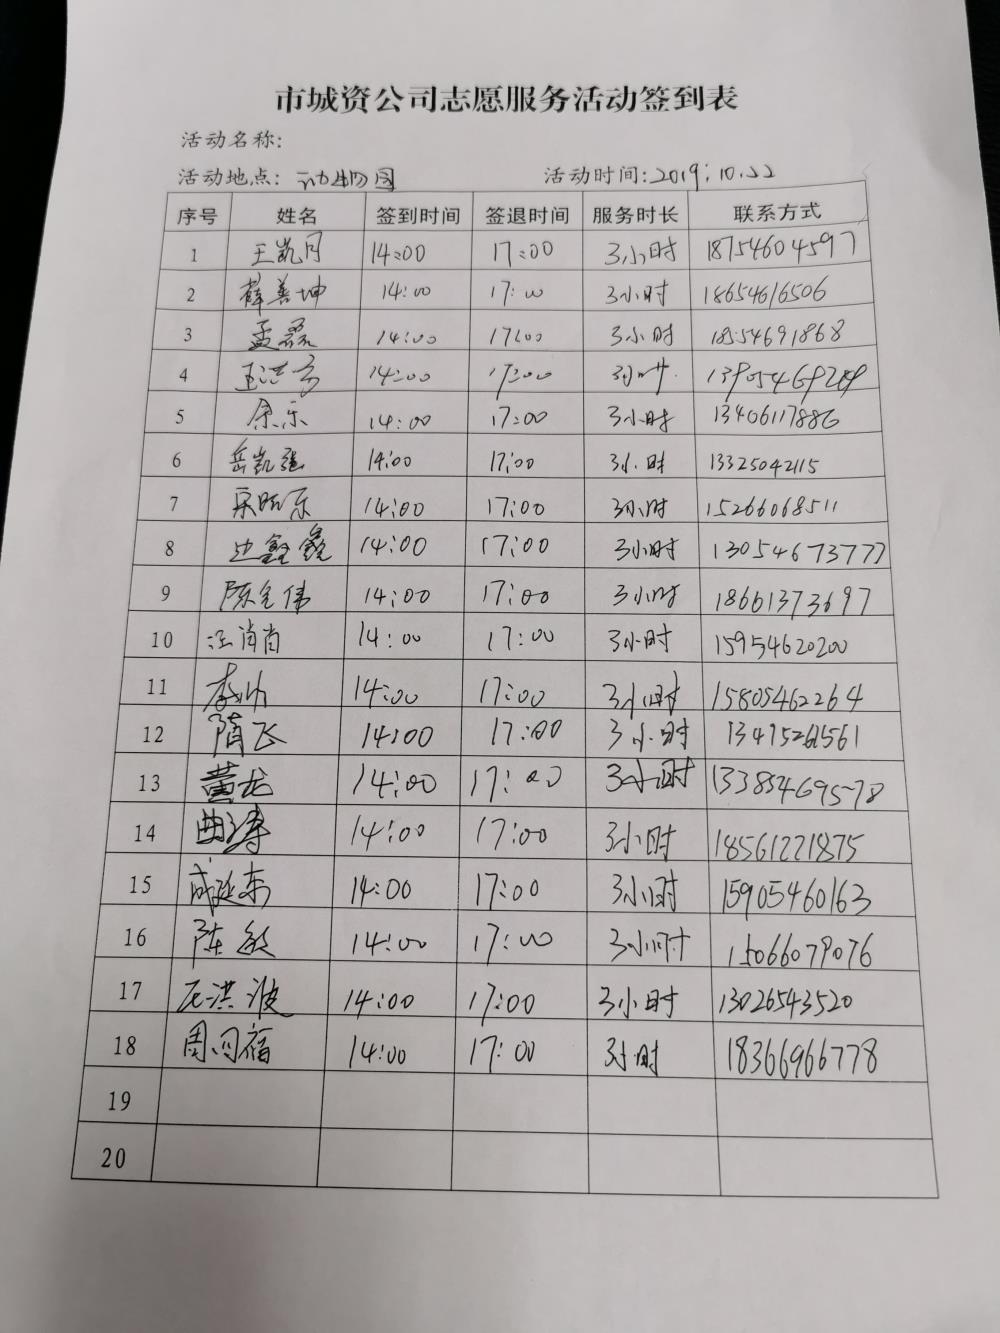 市城资公司志愿服务活动签到表
活动名称:
活动地点: 动物园 活动时间:2019:10.22
序号 姓名 签到时间 签退时间 服务时长 联系方式
1 王凯月 14:00 17:00 3小时 18754604597
2 薛善坤 14:00 17:00 3小时 18654616506
3 孟磊 14:00 17:00 3小时 18554691868
4 14:00 17:00 3小时
5 14:00 17:00 3小时 13406117886
6 岳凯强 14:00 17:00 3小时 13325042115
7 宋晓乐 14:00 17:00 3小时 15266068511
8 边鑫 14:00 17:00 3小时 13054673777
9 陈全伟 14:00 17:00 3小时 18661373697
10 汪肖肖 14:00 17:00 3小时 15954620200
11 李帅 14:00 17:00 3小时 15805462264
12 隋飞 14:00 17:00 3小时
13 黄龙 14:00 17:00 3小时 13385469578
14 曲涛 14:00 17:00 3小时 18561221875
15 成延东 14:00 17:00 3小时 15905460163
16 陈敏 14:00 17:00 3小时 15066079076
17 石洪波 14:00 17:00 3小时 13026543520
18 周同福 14:00 17:00 3小时 18366966778
19
20